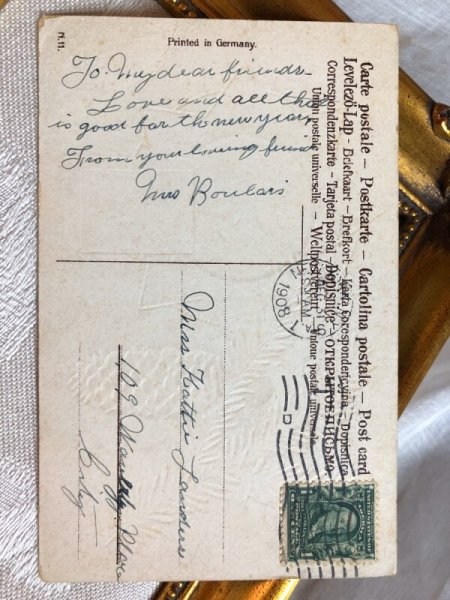 N.11.
Printed in Germany.
To My dear friends
Love and all that
is good for the new year
From your loving friend
Mrs
Carte postale – Postkarte – Cartolina postale – Post card
Levelező-Lap – Briefkaart – Brefkort – Karta Corespondencyjna – Dopisnica
Correspondenzkarte – Tarjeta postal – Dopisnice – ОТКРЫТОЕ ПИСЬМО
Union postale universelle – Weltpostverein – Unione postale universale
AM
1908
D
Miss Hattie Landers
109
City